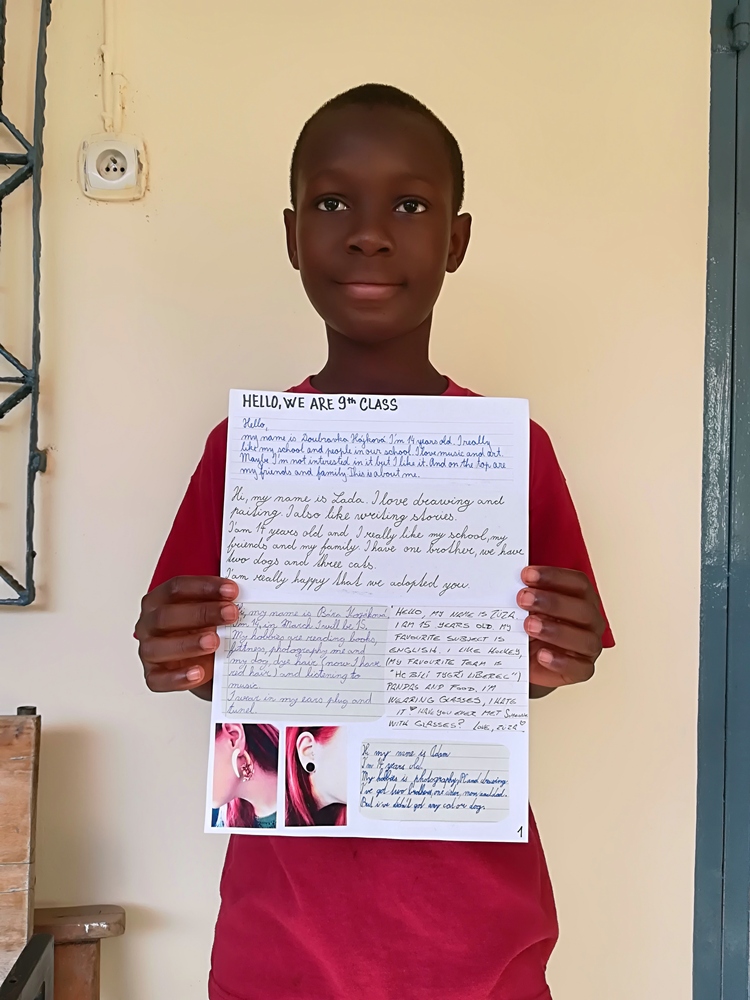 HELLO, WE ARE 9th CLASS
Hello,
my name is Doubravka Hájková. I'm 14 years old. I really
like my school and people in our school. I love music and art.
Maybe I'm not interested in it but I like it. And on the top are
my friends and family. This is about me.
Hi, my name is Lada. I love drawing and
paiting. I also like writing stories.
I'am 14 years old and I really like my school, my
friends and my family. I have one brother, we have
two dogs and three cats.
I'am really happy that we adopted you.
Hi, my name is Bára
I'm 14, in March I will be 15.
My hobbies are reading books,
fittness, photography me and
my dog, dye hair (now I have
red hair) and listening to
music.
I wear in my ears plug and
tunel.
HELLO, MY NAME IS ZUZA.
I AM 15 YEARS OLD. MY
FAVOURITE SUBJECT IS
ENGLISH. I LIKE HOCKEY,
(MY FAVOURITE TEAM IS
"HC BÍLÍ TYGŘI LIBEREC")
PANDAS AND FOOD. I'M
WEARING GLASSES, I HATE
IT HAVE YOU EVER MET SOMEONE
WITH GLASSES? LOVE, ZUZA
Hi my name is Adam
I'm 14 years old.
My hobbies is photography, PC and drawing.
I've got two brothers, one sister, mom and dad.
But we didn't got any cat or dog.
1